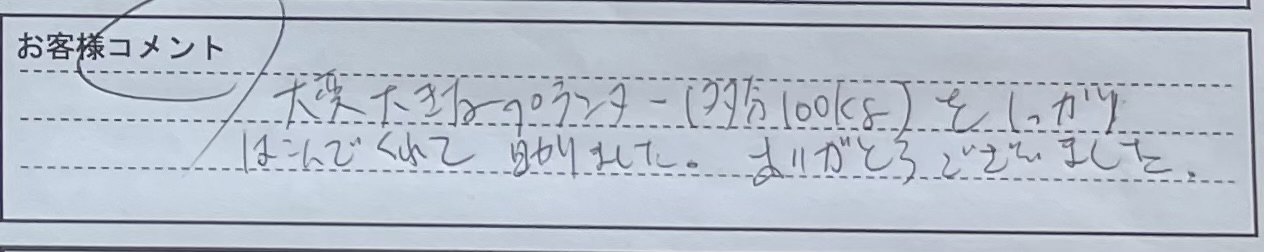 お客様コメント
大変大きなプランター(多分100kg)をしっかり
はこんでくれて助かりました。ありがとうございました。